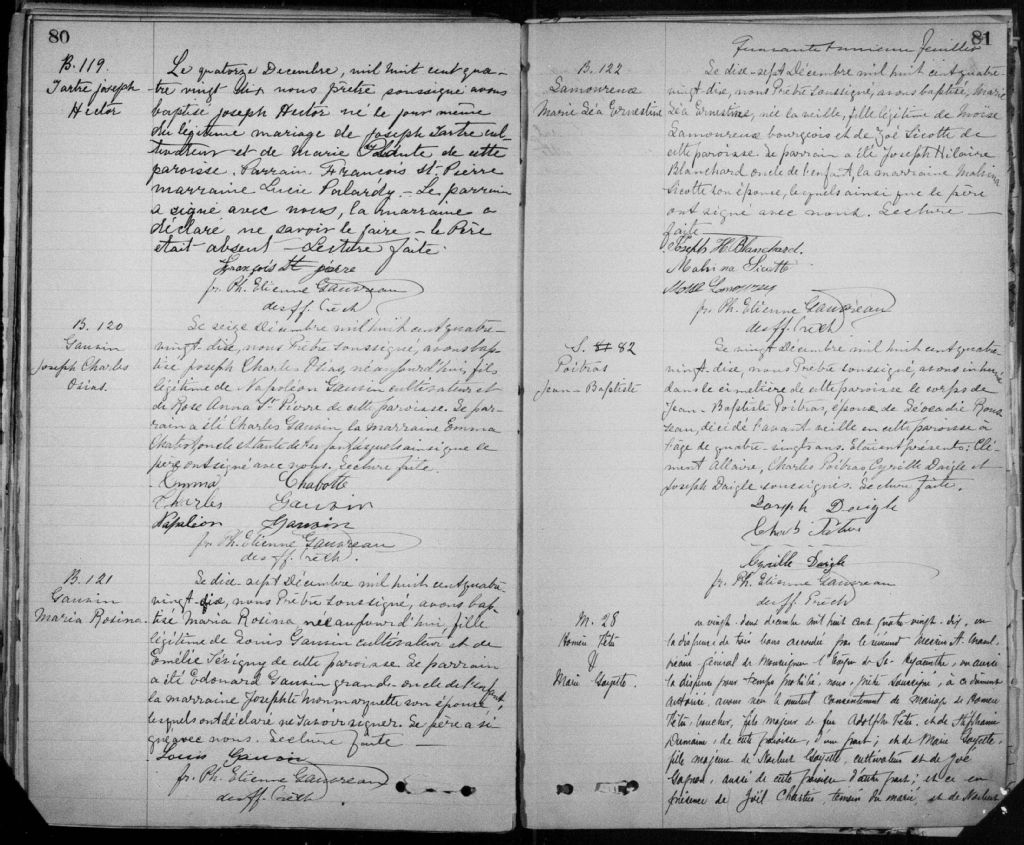 80
B. 119
Tartre Joseph
Hector
Le quatorze Decembre, mil huit cent qua-
tre vingt dix nous prêtre soussigné avons
baptisé joseph Hector né le jour même
du légitime mariage de joseph Tartre cul-
tivateur et de Marie de cette
paroisse. Parrain François St. Pierre
marraine Lucie Palardy - Le parrain
a signé avec nous, la marraine a
déclaré ne savoir le faire - le Père
était absent - Lecture faite.
François St pierre
fr. Ph. Etienne Gauvreau
des ff. Prêch.
B. 120
Gauvin
Joseph Charles
Osias.
Le seize Décembre mil huit cent quatre-
vingt-dix, nous Prêtre soussigné, avons bap-
tisé Joseph Charles Osias, né aujourd'hui, fils
légitime de Napoléon Gauvin cultivateur et
de Rose Anna St Pierre de cette paroisse. Le par-
rain a été Charles Gauvin, la marraine Emma
Chabot, oncle et tante de lesquels ainsi que le
père ont signé avec nous. Lecture faite.
Emma Chabotte
Charles Gauvin
Napoléon Gauvin
fr. Ph. Etienne Gauvreau
des ff. Prêch.
B. 121
Gauvin
Maria Rosina.
Le dix-sept Décembre mil huit cent quatre
vingt-dix, nous Prêtre soussigné, avons bap-
tisé Maria Rosina née aujourd'hui, fille
légitime de Louis Gauvin cultivateur et de
Emélie Sévigny de cette paroisse. Le parrain
a été Edouard Gauvin grand-oncle de l'enfant,
la marraine Josephte Monmarquette son épouse,
lesquels ont déclaré ne savoir signer. Le père a si-
gné avec nous. Lecture faite -
Louis Gauvin
fr. Ph. Etienne Gauvreau
des ff. Prêch.
81
Quarante unième feuillet
B. 122
Lamoureux
Marie Léa Ernestine
Le dix-sept Décembre mil huit cent quatre
vingt-dix, nous Prêtre soussigné, avons baptisé, Marie
Léa Ernestine, née la veille, fille légitime de Moïse
Lamoureux bourgeois et de Zoé Sicotte de
cette paroisse. Le parrain a été Joseph Hilaire
Blanchard oncle de l'enfant, la marraine Malvina
Sicotte son épouse, lesquels ainsi que le père
ont signé avec nous. Lecture
faite
Joseph H. Blanchard.
Malvina Sicotte
fr. Ph. Etienne Gauvreau
des ff. Prêch
S. 82
Poitras
Jean-Baptiste
Le vingt Décembre mil huit cent quatre
vingt-dix, nous Prêtre soussigné, avons inhumé
dans le cimetière de cette paroisse le corps de
Jean-Baptiste Poitras, époux de Léocadie Rous
seau, décédé l'avant veille en cette paroisse à
l'âge de quatre-vingts ans. Etaient présents: Clé-
ment Allaire, Charles Poitras, Cyrille Daigle et
Joseph Daigle soussignés. Lecture faite.
Joseph Daigle
Cyrille Daigle
fr. Ph. Etienne Gauvreau
des ff. Prêch
M. 28
Homère Tétu
&
Marie Goyette.
vingt deux decembre mil huit cent quatre-vingt-dix, vu
la dispense de trois bans accordée par le révérend messire A.
vicaire général de Monseigneur l'Evêque de St-Hyacinthe, vu aussi
la dispense pour temps prohibé, nous, prêtre soussigné, à ce dûment
autorisé, avons reçu le mutuel consentement de Mariage de Homère
Tétu, boucher, fils majeur de feu Adolphe Tétu et de Stéphanie
Dumaine, de cette paroisse, d'une part; et de Marie Goyette,
fille majeure de Norbert Goyette, cultivateur et de Zoé
Gagnon, aussi de cette paroisse d'autre part; et ce en
présence de Joël Chartier, témoin du marié, et de Norbert